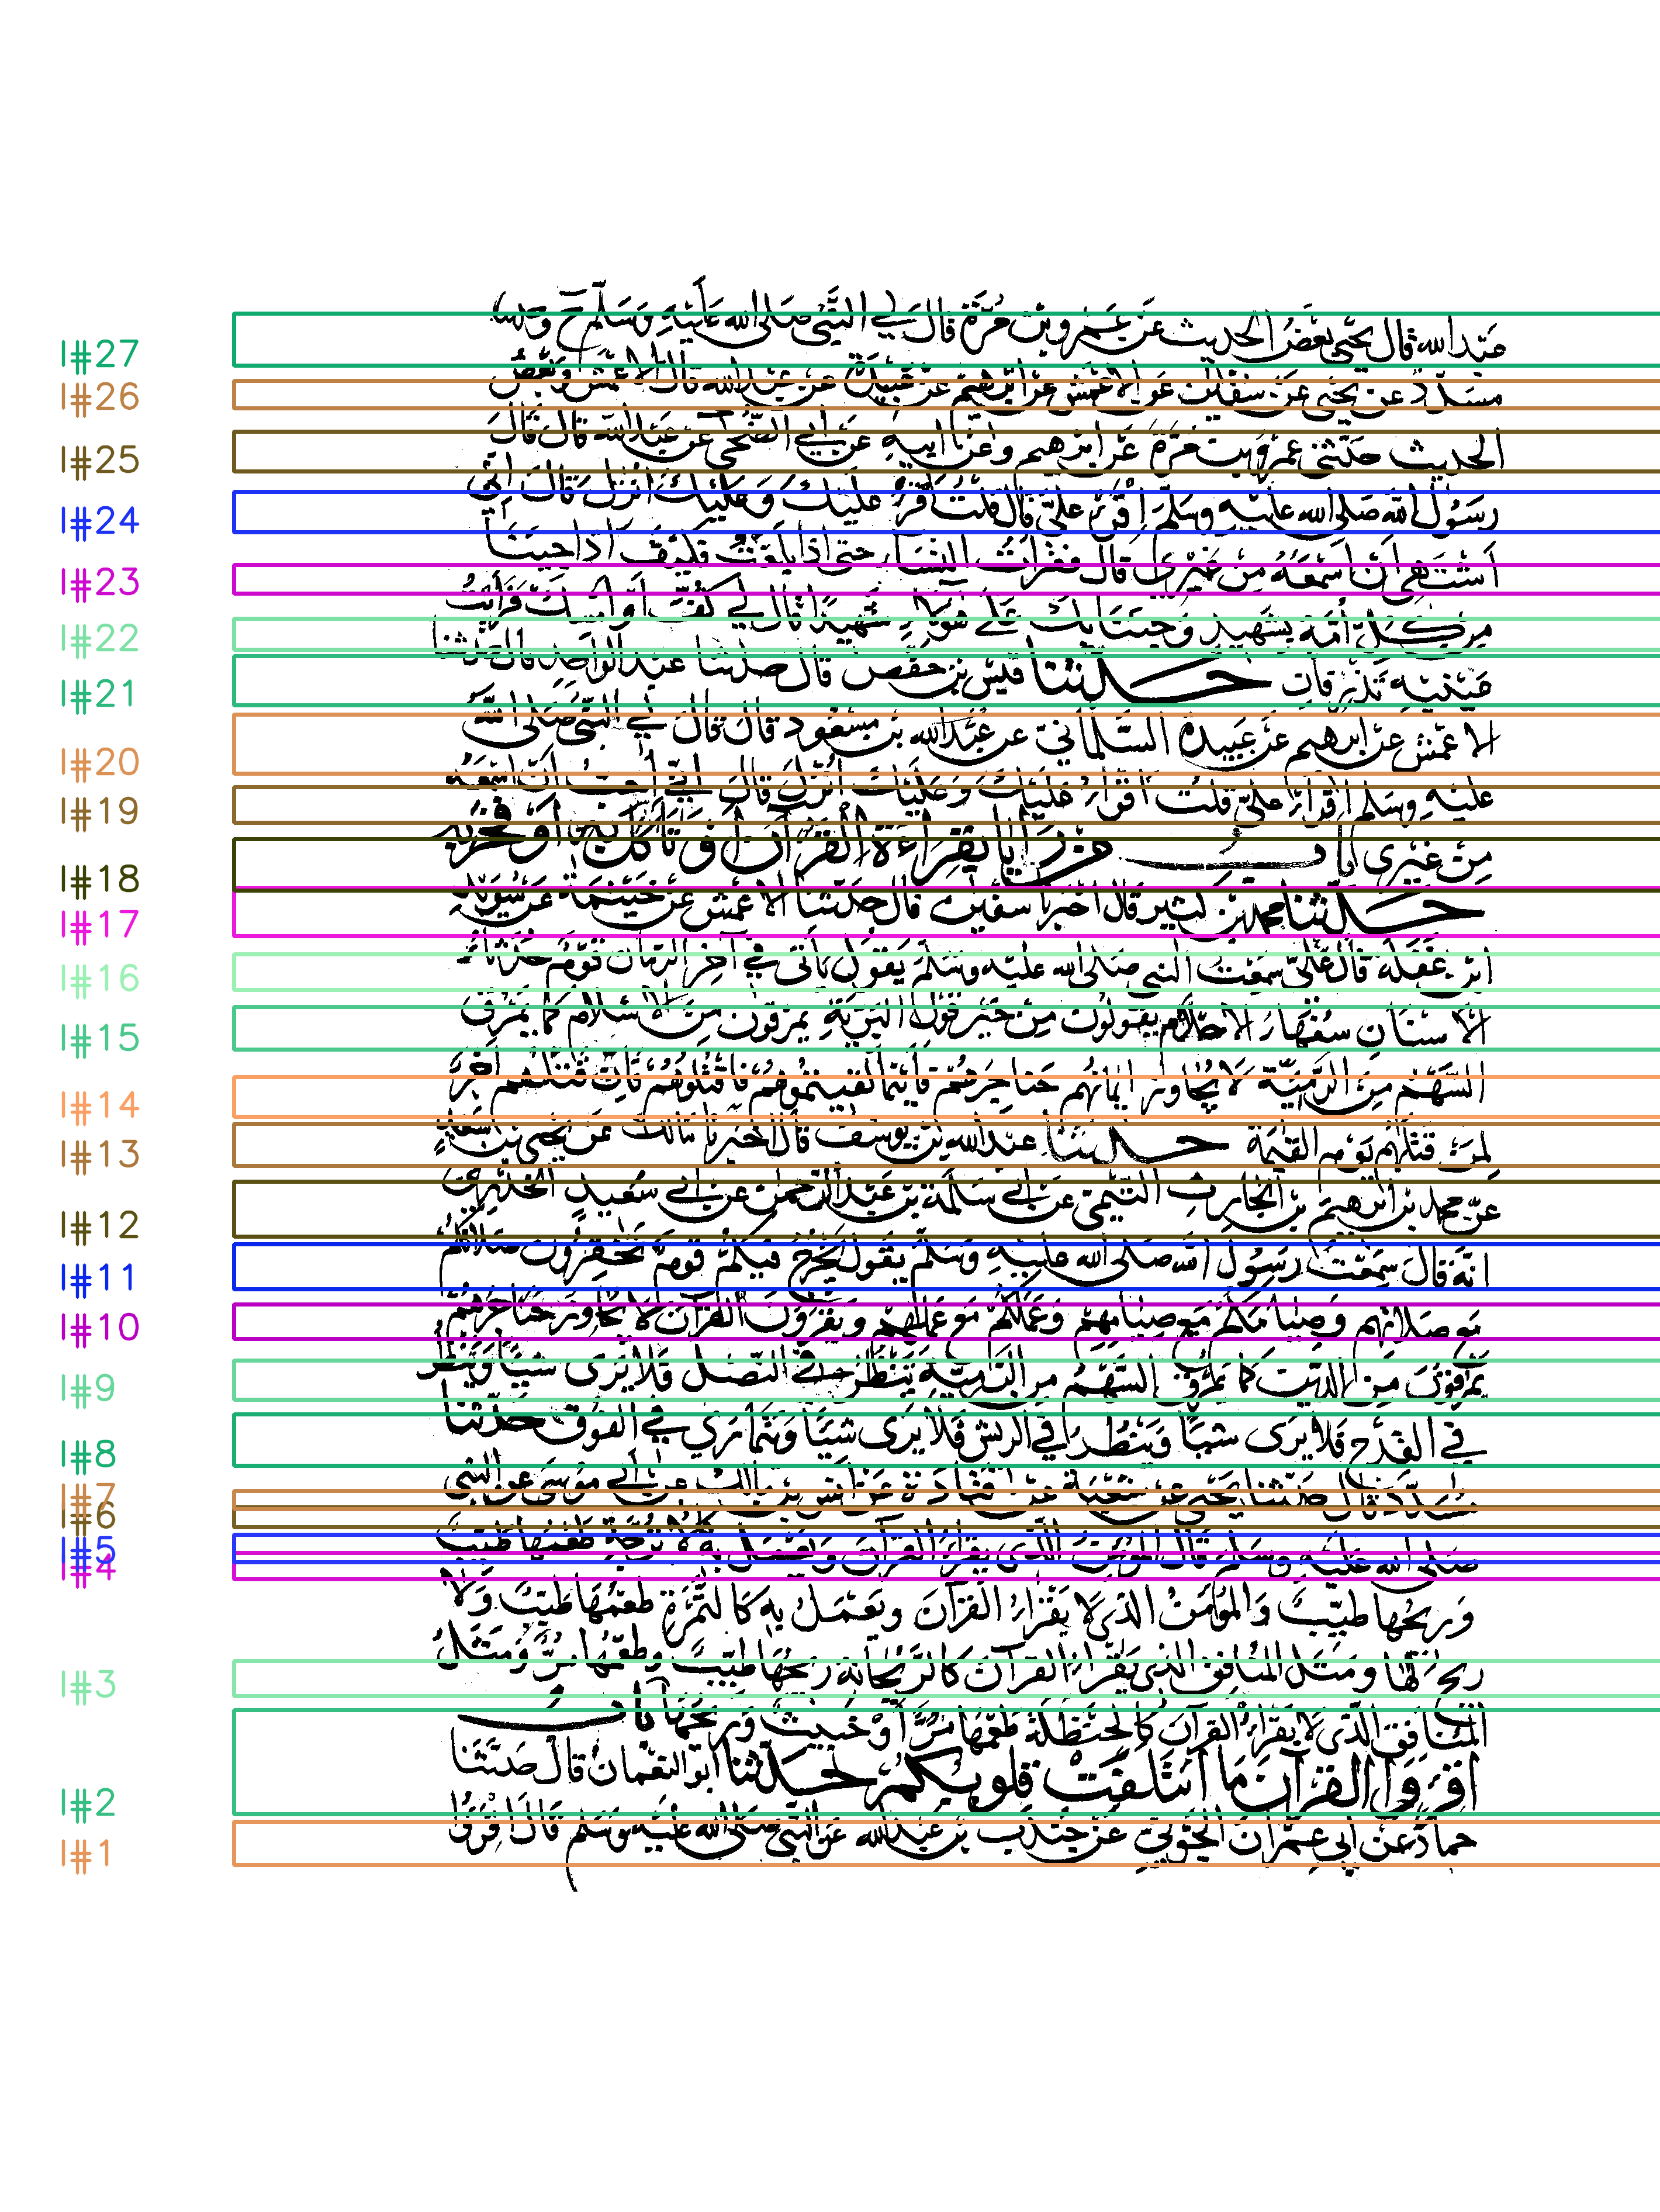 عبد الله قال يحيى بعض الحديث عن عمرو بن مرة قال لي النبي صلى الله عليه وسلم ح وحدثنا
مسدد عن يحيى عن سفيان عن الاعمش عن ابرهيم عن عبيدة عن عبد الله قال الاعمش وبعض
الحديث حدثني عمرو بن مرة عن ابرهيم وعن ابيه عن ابي الضحى عن عبد الله قال قال
رسول الله صلى الله عليه وسلم اقرا علي قال قلت اقرا عليك وعليك انزل قال اني
اشتهي ان اسمعه من غيري قال فقرات النساء حتى اذا بلغت فكيف اذا جينا
من كل امة بشهيد وجينا بك على هولاء شهيدا قال لي كف او امسك فرايت
عينيه تذرفان حدثنا قيس بن حفص قال حدثنا عبد الواحد قال حدثنا
الاعمش عن ابرهيم عن عبيدة السلماني عن عبد الله بن مسعود قال قال لي النبي صلى الله
عليه وسلم اقرا علي قلت اقرا عليك وعليك انزل قال اني احب ان اسمعه
من غيري باب من رايا بقراءة القرآن او تاكل به او فخر به
حدثنا محمد بن كثير قال اخبرنا سفين قال حدثنا الاعمش عن خيثمة عن سويد
ابن غفلة قال علي سمعت النبي صلى الله عليه وسلم يقول ياتي في آخر الزمان قوم حدثاء
الاسنان سفهاء الاحلام يقولون من خير قول البرية يمرقون من الاسلام كما يمرق
السهم من الرمية لا يجاوز ايمانهم حناجرهم فاينما لقيتموهم فاقتلوهم فان قتلهم اجر
لمن قتلهم يوم القيمة حدثنا عبد الله بن يوسف قال اخبرنا مالك عن يحيى بن سعيد
عن محمد بن ابرهيم بن الحارث التيمي عن ابي سلمة بن عبد الرحمن عن ابي سعيد الخدري
انه قال سمعت رسول الله صلى الله عليه وسلم يقول يخرج فيكم قوم تحقرون صلاتكم
مع صلاتهم وصيامكم مع صيامهم وعملكم مع عملهم ويقرون القرآن لا يجاوز حناجرهم
يمرقون من الدين كما يمرق السهم من الرمية ينظر في النصل فلا يرى شيا وينظر
في القدح فلا يرى شيا وينظر في الريش فلا يرى شيا ويتمارى في الفوق حدثنا
مسدد قال حدثنا يحيى عن شعبة عن قتادة عن انس بن مالك عن ابي موسى عن النبي
صلى الله عليه وسلم قال المومن الذي يقرا القرآن ويعمل به كالاترجة طعمها طيب
وريحها طيب والمومن الذي لا يقرا القرآن ويعمل به كالتمرة طعمها طيب ولا
ريح لها ومثل المنافق الذي يقرا القرآن كالريحانة ريحها طيب وطعمها مر ومثل
المنافق الذي لا يقرا القرآن كالحنظلة طعمها مر او خبيث وريحها باب
اقروا القرآن ما ائتلفت قلوبكم حدثنا ابو النعمان قال حدثنا
حماد عن ابي عمران الجوني عن جندب بن عبد الله عن النبي صلى الله عليه وسلم قال اقروا
l#27
l#26
l#25
l#24
l#23
l#22
l#21
l#20
l#19
l#18
l#17
l#16
l#15
l#14
l#13
l#12
l#11
l#10
l#9
l#8
l#7
l#6
l#5
l#4
l#3
l#2
l#1